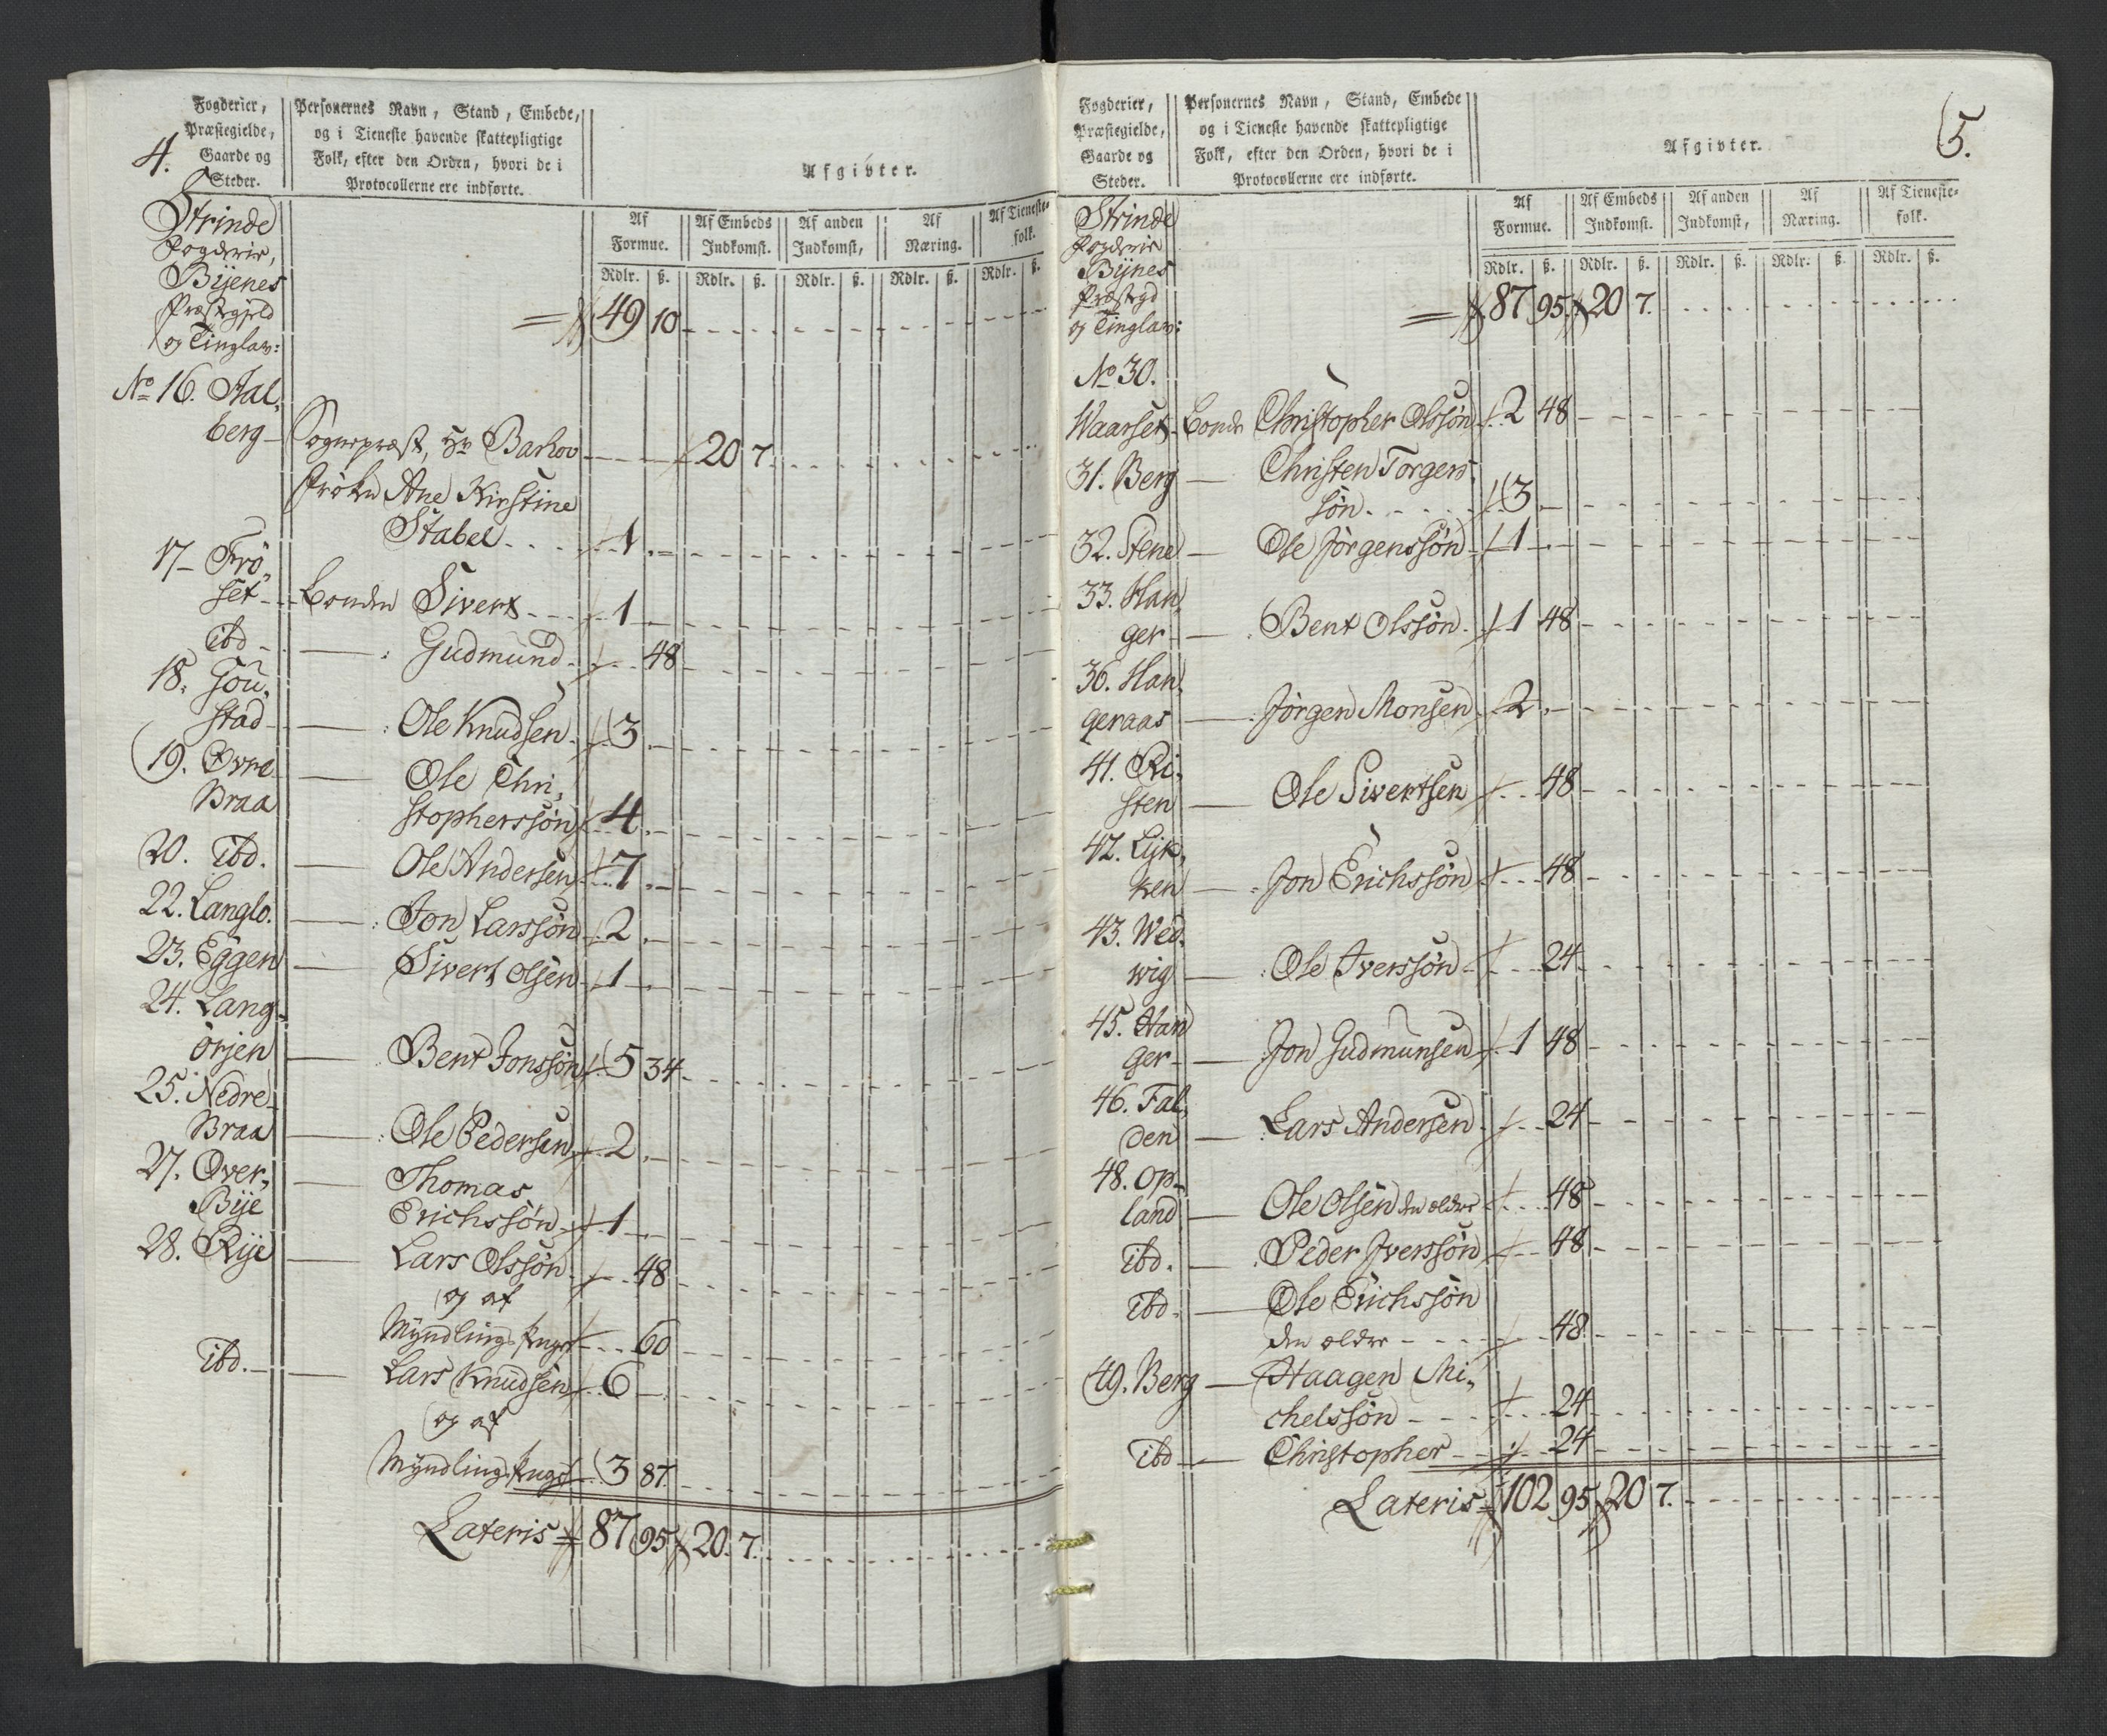 4.
Fogderier,
Præstegielde,
Gaarde og
Steder.
Personernes Navn, Stand, Embede,
og i Tieneste havende skattepligtige
Folk, efter den Orden, hvori de i
Protocollerne ere indførte.
Afgivter.
Af Formue. Af Embeds Indkomst. Af anden Indkomst, Af Næring. Af Tieneste- folk.
Rdlr. ß. Rdlr. ß. Rdlr. ß. Rdlr. ß. Rdlr. ß.
Strinde
Fogderie,
Bijenes
Præstegjeld
og Tinglav:
49 10
No 16. Aal,
berg - Sognepræst, Hr Barhow 20 7.
Frøken Ane Kirstine
Stabel 1. -
17- Frö,
set - Bonden Sivert 1 -
ibd - Gudmund 48
18. Jou,
stad - Ole Knudsen 3. -
19. Øvre Ole Chri,
Braa stopherssøn 4. -
20. ibd. Ole Andersen 7. -
22. Langlo. Jon Larssøn 2. -
23. Eggen Sivert Olsen 1 -
24. Lang-
örjen Bent Jonssøn 5 34
25. Nedre
Braa Ole Pedersen 2. -
27. Over, Thomas
Bije Erichssøn 1 -
28. Rije Lars Olssøn 48
og af
Myndlings 60
ibd. - Lars Knudsen 6 -
og af
Myndlings 3 87.
Lateris = 87 95 20. 7.
5.
Fogderier,
Præstegielde,
Gaarde og
Steder.
Personernes Navn, Stand, Embede
og i Tieneste havende skattepligtige
Folk, efter den Orden, hvori de i
Protocollerne ere indførte.
Afgivter.
Af Formue. Af Embeds Indkomst. Af anden Indkomst, Af Næring. Af Tieneste- folk.
Rdlr. ß. Rdlr. ß. Rdlr. ß. Rdlr. ß. Rdlr. ß.
Strinde
Fogderie
Bijnes
Præstegd
og Tinglav:
87 95. 20 7.
No 30.
Waarset - Bonde Christopher Olssøn 2 48
31. Berg - Christen Torgers,
søn 3. -
32. Stene - Ole Jörgenssøn 1 -
33. Han,
ger - Bent Olssøn. 1 48
36. Han,
geraas - Jörgen Monsen 2. -
41. Ri,
sten - Ole Sivertsen 48
42. Lyk,
ken - Jon Erichssøn 48
43. Wed,
wig - Ole Iverssøn 24
45. Han
ger - Jon Gudmunsen 1 48
46. Fal,
den - Lars Andersen 24
48. Op-
land - Ole Olsen den ældre 48
ibd. - Peder Iverssøn 48
ibd. - Ole Erichssøn
den ældre - 48
49. Berg - Haagen Mi,
chelssøn - 24
ibd - Christopher - 24
Lateris = 102 95 20 7.